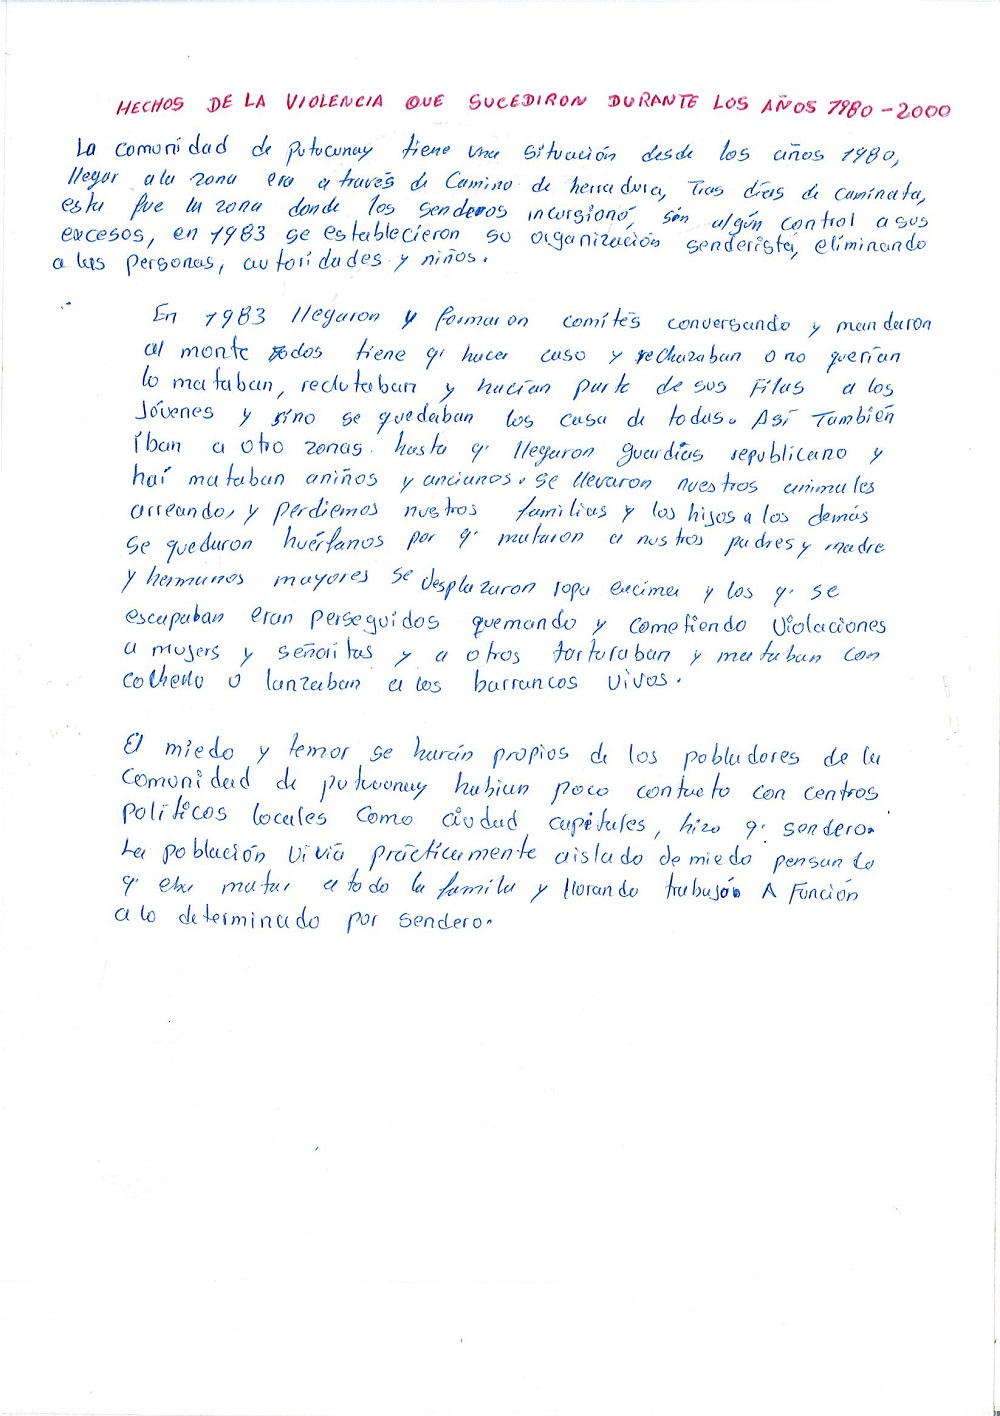 HECHOS DE LA VIOLENCIA QUE SUCEDIRON DURANTE LOS AÑOS 1980-2000
La comunidad de putucunay tiene una situación desde los años 1980,
llegar a la zona era a través de Camino de herradura, Tras días de caminata,
esta fue la zona donde los senderos incursionó, sin algún control a sus
excesos, en 1983 se establecieron su organización senderista, eliminando
a las personas, autoridades y niños.
En 1983 llegaron y formaron comités conversando y mandaron
al monte todos tiene q' hacer caso y rechazaban o no querían
lo mataban, reclutaban y hacían parte de sus Filas a los
Jóvenes y sino se quedaban los casa de todas. Así También
iban a otro zonas. hasta q' llegaron guardias republicano y
haí mataban aniños y ancianos. se llevaron nuestros animales
arreando, y perdiemos nuestros familias y los hijos a los demás
se quedaron huérfanos por q' mataron a nustros padres y madre
y hermanos mayores se desplazaron ropa encima y los q' se
escapaban eran perseguidos quemando y cometiendo Violaciones
a mujers y señoritas y a otros torturaban y mataban con
lanzaban a los barrancos vivos.
El miedo y temor se harán propios de los pobladores de la
Comunidad de habian poco contacto con centros
políticos locales como ciudad capitales, hizo q' sendero.
La población vivía prácticamente aislado de miedo pensando
q' eba matar a todo la familia y llorando trabajó A Función
a lo determinado por sendero.